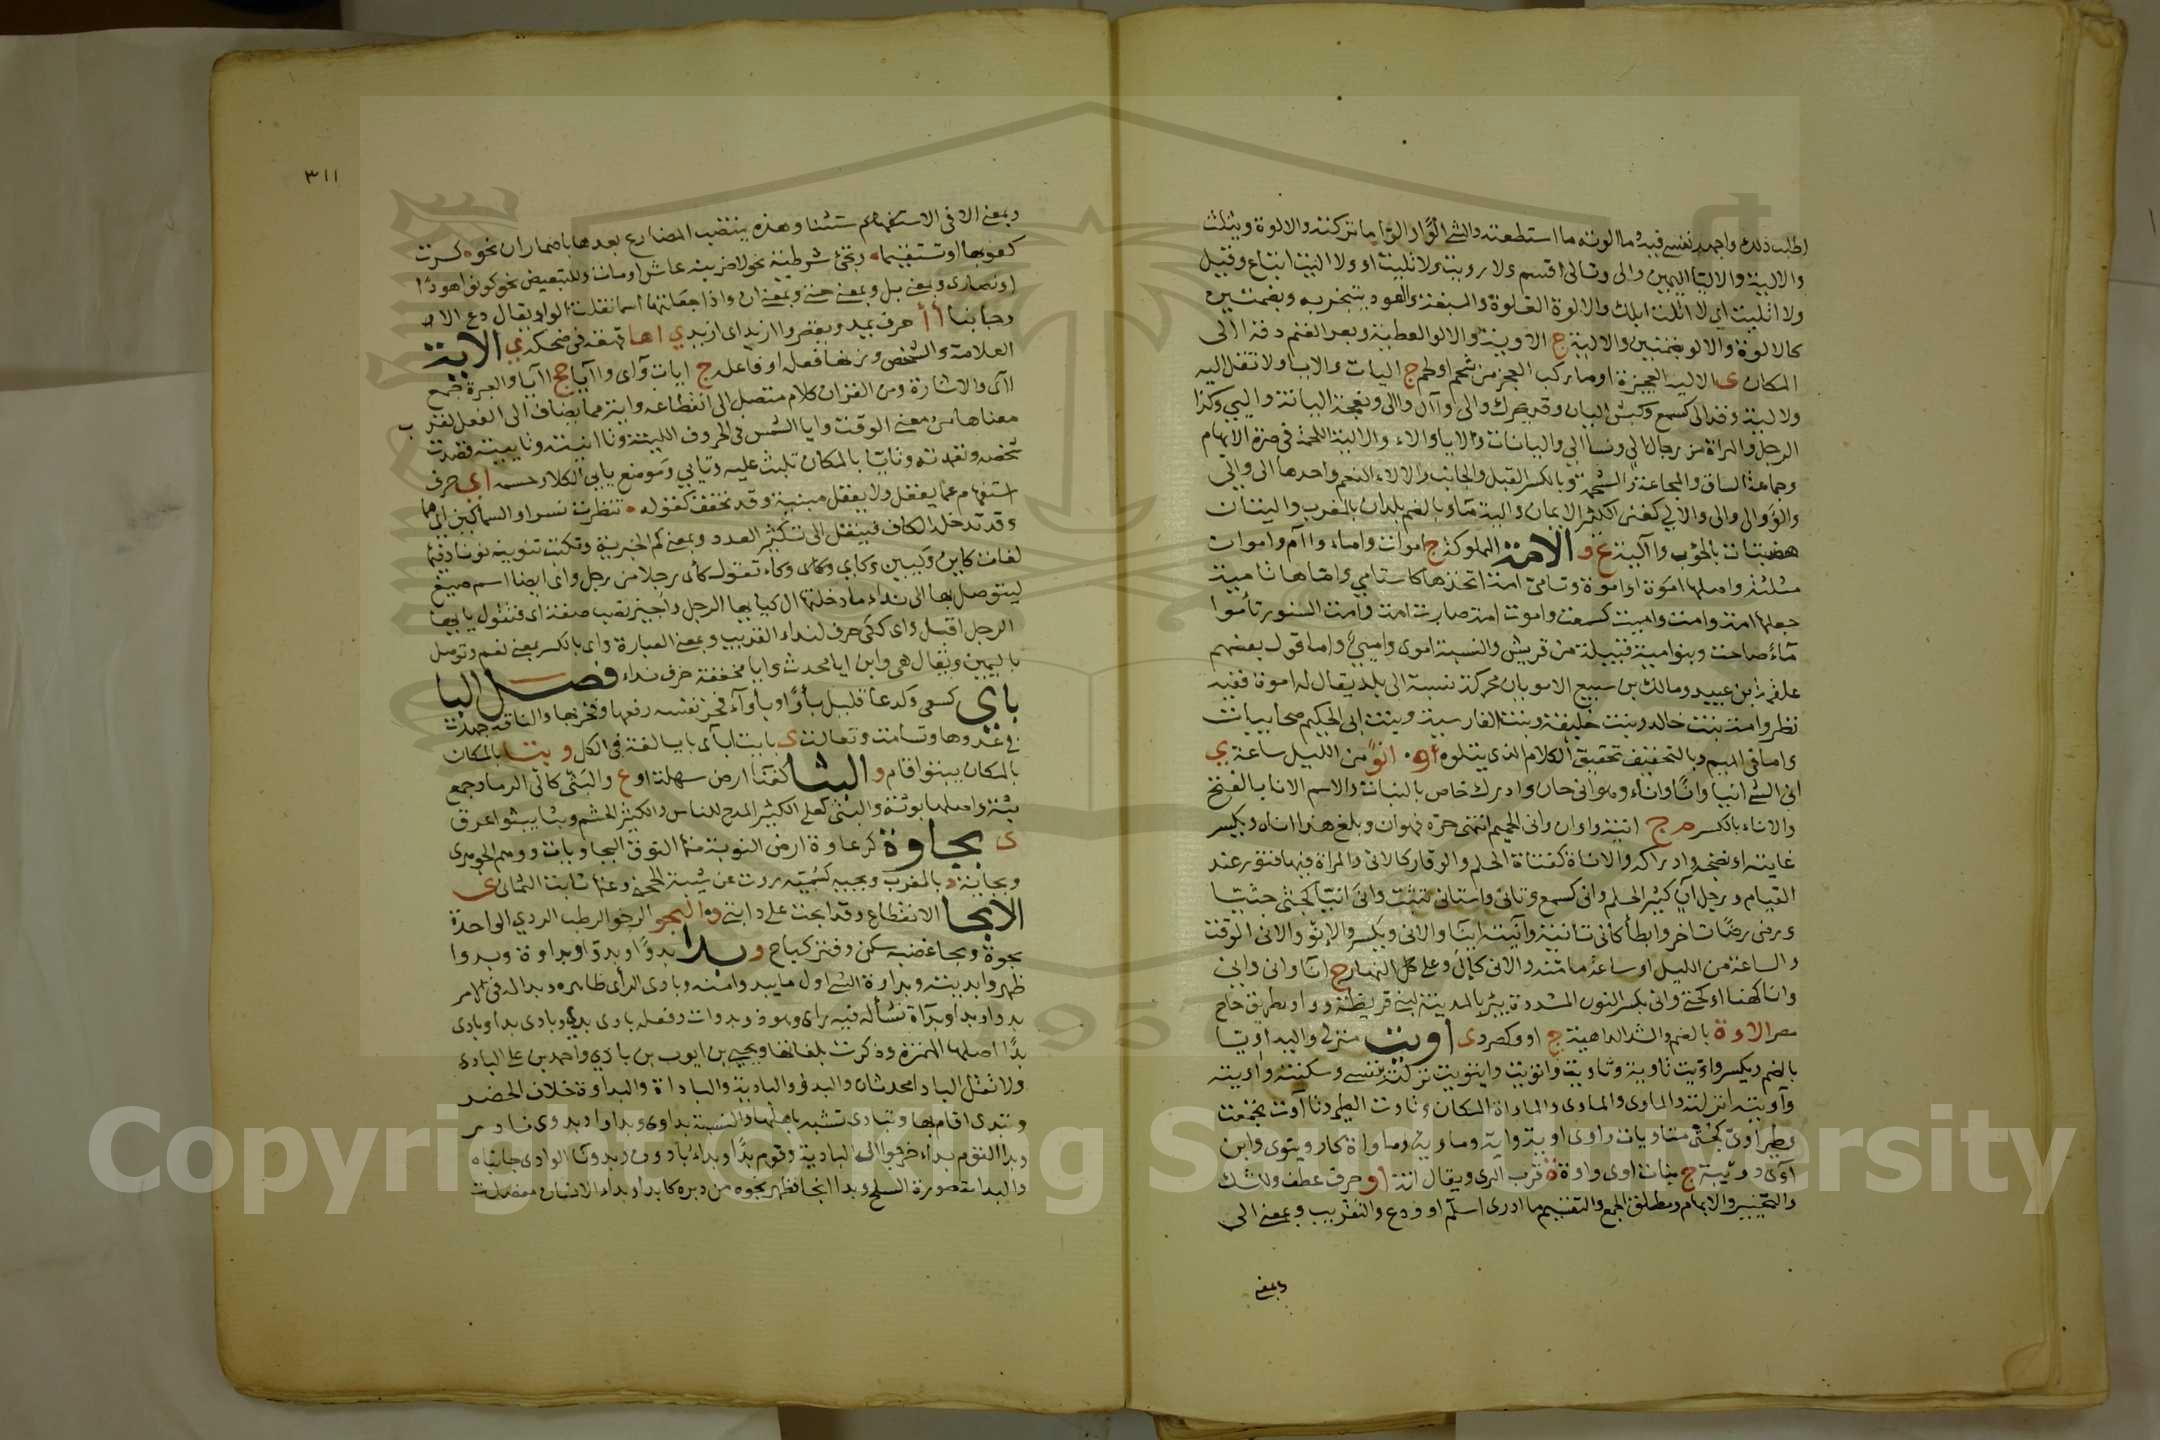 اطلب ذلك واجهد نفسي فيه وما الوته ما استطعته والشي ألوًا وألوًا ما تركته والالوة ويثلث
والالية والاليا اليمين والى وتالى اقسم ولا دريت ولا تليت او ولا اليت اتباع وقيل
ولا اتليت اي لا اتلت ابلك والالوة الغلوة والسبقة والعود يتبخر به وبضمتين
كالالوة والالو بضمتين والالية ج الاوية والالو العطية وبعر الغنم دقه االى
المكان ى الالية العجيزة او ما ركب العجز من شحم ولحم ج اليات والايا ولا تقل الية
ولا لية وقد الى كسمع وكبش اليان وقد يحرك والى واآل والى ونعجة اليانة واليى وكذا
الرجل والمراة من رجال الى ونسا الي واليانات والايا والاء والالية اللحمة في ضرة الابهام
وحماة الساق والمجاعة والشحمة وبالكسر القبل والجانب والالاء النعم واحدها الى والي
والو والى والى والالي كغني الكثير الايمان والية ماء وبالضم بلدان بالمغرب واليتان
هضبتان بالحوب واآلية ع و الامة المملوكة ج اموات واماء واآم واموات
مثلثة واصلها اموة او اموة وتامى امة اتخذها كاستامى واماها تامية
جعلها امة وامت واميت كسمعت واموت امة صارت امة وامت السنور تأموا
مآء صاحت وبنوامية قبيلة من قريش والنسبة اموى واميي واما قول بعضهم
علقمة بن عبيد ومالك بن سبيع الامويان محركة نسبة الى بلد يقال له اموة ففيه
نظر وامة بنت خالد وبنت خليفة وبنت الفارسية وبنت ابى الحكيم صحابيات
واما في الميم وبالتخفيف تحقيق الكلام الذى يتلوه و انو من الليل ساعة ي
انى الشي انيا واناء وانى وهو انى حان وادرك خاص بالنبات والاسم الانا بالفتح
والاناء بالكسر م ج انية واوان وانى الحميم انتهى حره فهو ان وبلغ هذا اناه ويكسر
غايته او نضجه وادراكه والاناة كقناة الحلم والوقار كالانى والمراة فيها فتور عند
القيام ورجل آن كثير الحلم وانى كسمع وتانى واستانى تثبت وانى انيا كجثى جثيا
ورضى رضا تاخر وابطأ كانى تانية وآنيته اينا والانى ويكسر والانو والانى الوقت
والساعة من الليل او ساعة ما منه والانى كالى وعلى كل النهار ج انا وانى وانى
وانا كهنا او كحتى وانى بكسر النون المشددة بير بالمدينة لبنى قريظة وواد بطريق حاج
مصر الاوة بالضم والشد الداهية ج اوو كصرد ى اويت منزلى واليه اويا
بالضم ويكسر واويت تاوية وتاويت واتويت وايتويت نزلته بنفسي وسكنته واويته
وآويته انزلته والماوى والماوى والماواة المكان وتاوت الطير وتآوت تجمعت
وطير اوى كجثى متاويات واوى له اوية واية وماوية وماواة كار ويتوى وابن
آوى دويبة ج بنات اوى واوة ة قرب الرى ويقال انته او حرف عطف وللشك
والتخيير والابهام ومطلق الجمع والتقسيم ما ادرى اسلم او ودع والتقريب وبمعنى الى
وبمعنى
٣١١
وبمعنى الا فى الاستفهام ستثنا وهذه ينتصب المضارع بعدها باضمار ان نحو كسرت
كعوبها او تستقيما وتجئ شرطية نحو لاضربنه عاش او مات وللتبعيض نحو كونوا هودًا
او نصارى وبمعنى بل وبمعنى حتى وبمعنى ان واذا جعلتها اسما ثقلت الواو يقال دع الاو
جانبا أأ حرف يمد ويقصر وا ازيد اى ازيد ي اها قهقه في ضحكه ي الاية
العلامة والشخص وزنها فعلة او فاعلة ج ايات وآى واآيا جج اايا والعبرة جمع
اآى والاشارة ومن القران كلام متصل الى انقطاعه واية مما يضاف الى الفعل لقرب
معناها من معنى الوقت وايا الشمس فى الحروف اللينة وتاانيته وتاييته قصدت
شخصه وتعمدته وتايا بالمكان تلبث عليه وتايى وموضع يايى الكلا وخسه اى حرف
استفهام عما يعقل ولا يعقل مبنية وقد تخفف كقوله تنظرت نسرا والسماكين ايهما
وقد تدخله الكاف فينقل الى تكثير العدد وبمعنى كم الخبرية وتكتب تنوينه نونا وفيها
لغات كاين وكيين وكاين وكاى وكاء تقول كأى رجلا من رجل واى ايضا اسم صيغ
ليتوصل بها الى نداء ما دخلته ال كيا ايها الرجل واجيز نصب صفة اى فتقول يا ايها
الرجل اقبل واى ككى حرف لنداء القريب وبمعنى العبارة واى بالكسر بمعنى نعم وتوصل
باليمين ويقال هى وابن ايا محدث وايا مخففة حرف نداء فصل البا
بأي كسعى وكدعا قليل بأوًا وبأوآء فخر نفسه رفعها وفخر بها والناقة جهدت
في عدوها وتسامت وتعالت ى بايت ابأى بايا لغة فى الكل و بتا بالمكان
بالمكان يبتوا اقام و البثا كقفا ارض سهلة او ع والبثى كالى الرماد جمع
بثة واصلها بوثة والبثى كعلى الكثير المدح للناس والكثير الحشم وبثا يبثوا عرق
ى بجاوة كزعاوة ارض النوبة منها النوق البجاويات ووهم الجوهرى
وبجاية د بالمغرب وبجية كسمية روت عن شيبة الحجى وعنها ثابت الثمالى ى
الأبجا الانقطاع وقد ابجت على دابتى وه البجو الرخو الرطب الردى الواحدة
بجوة وبجا غضبه سكن وفتر كباخ و بدا بدوًا وبدوّا وبداوة وبدوا
ظهر وابديته وبداوة الشى اول ما يبدو امنه وبادى الرأى ظاهره وبدا له فى الامر
بدوا وبدا وبدآة نشأ له فيه راى وهو ذو بدوات وفعله بادى بدى وبادى بدا وبادى
بدا اصلها الهمزة وذكرت بلغاتها ويحيى بن ايوب بن بادى واحمد بن على البادى
ولا تقل البادا محدثان والبدو والبادية والباداة والبداوة خلاف الحضر
وتبدى اقام بها وتبادى تشبه باهلها والنسبة بداوى وبداوى وبدوى نادر
وبدا القوم بداء خرجوا الى البادية وقوم بدًا وبداء بادون وبدوتا الوادى جانباه
والبدا مقصورة السلح وبدا انجا فظهر نجوه من دبره كابدا وبداء الانسان مفصله